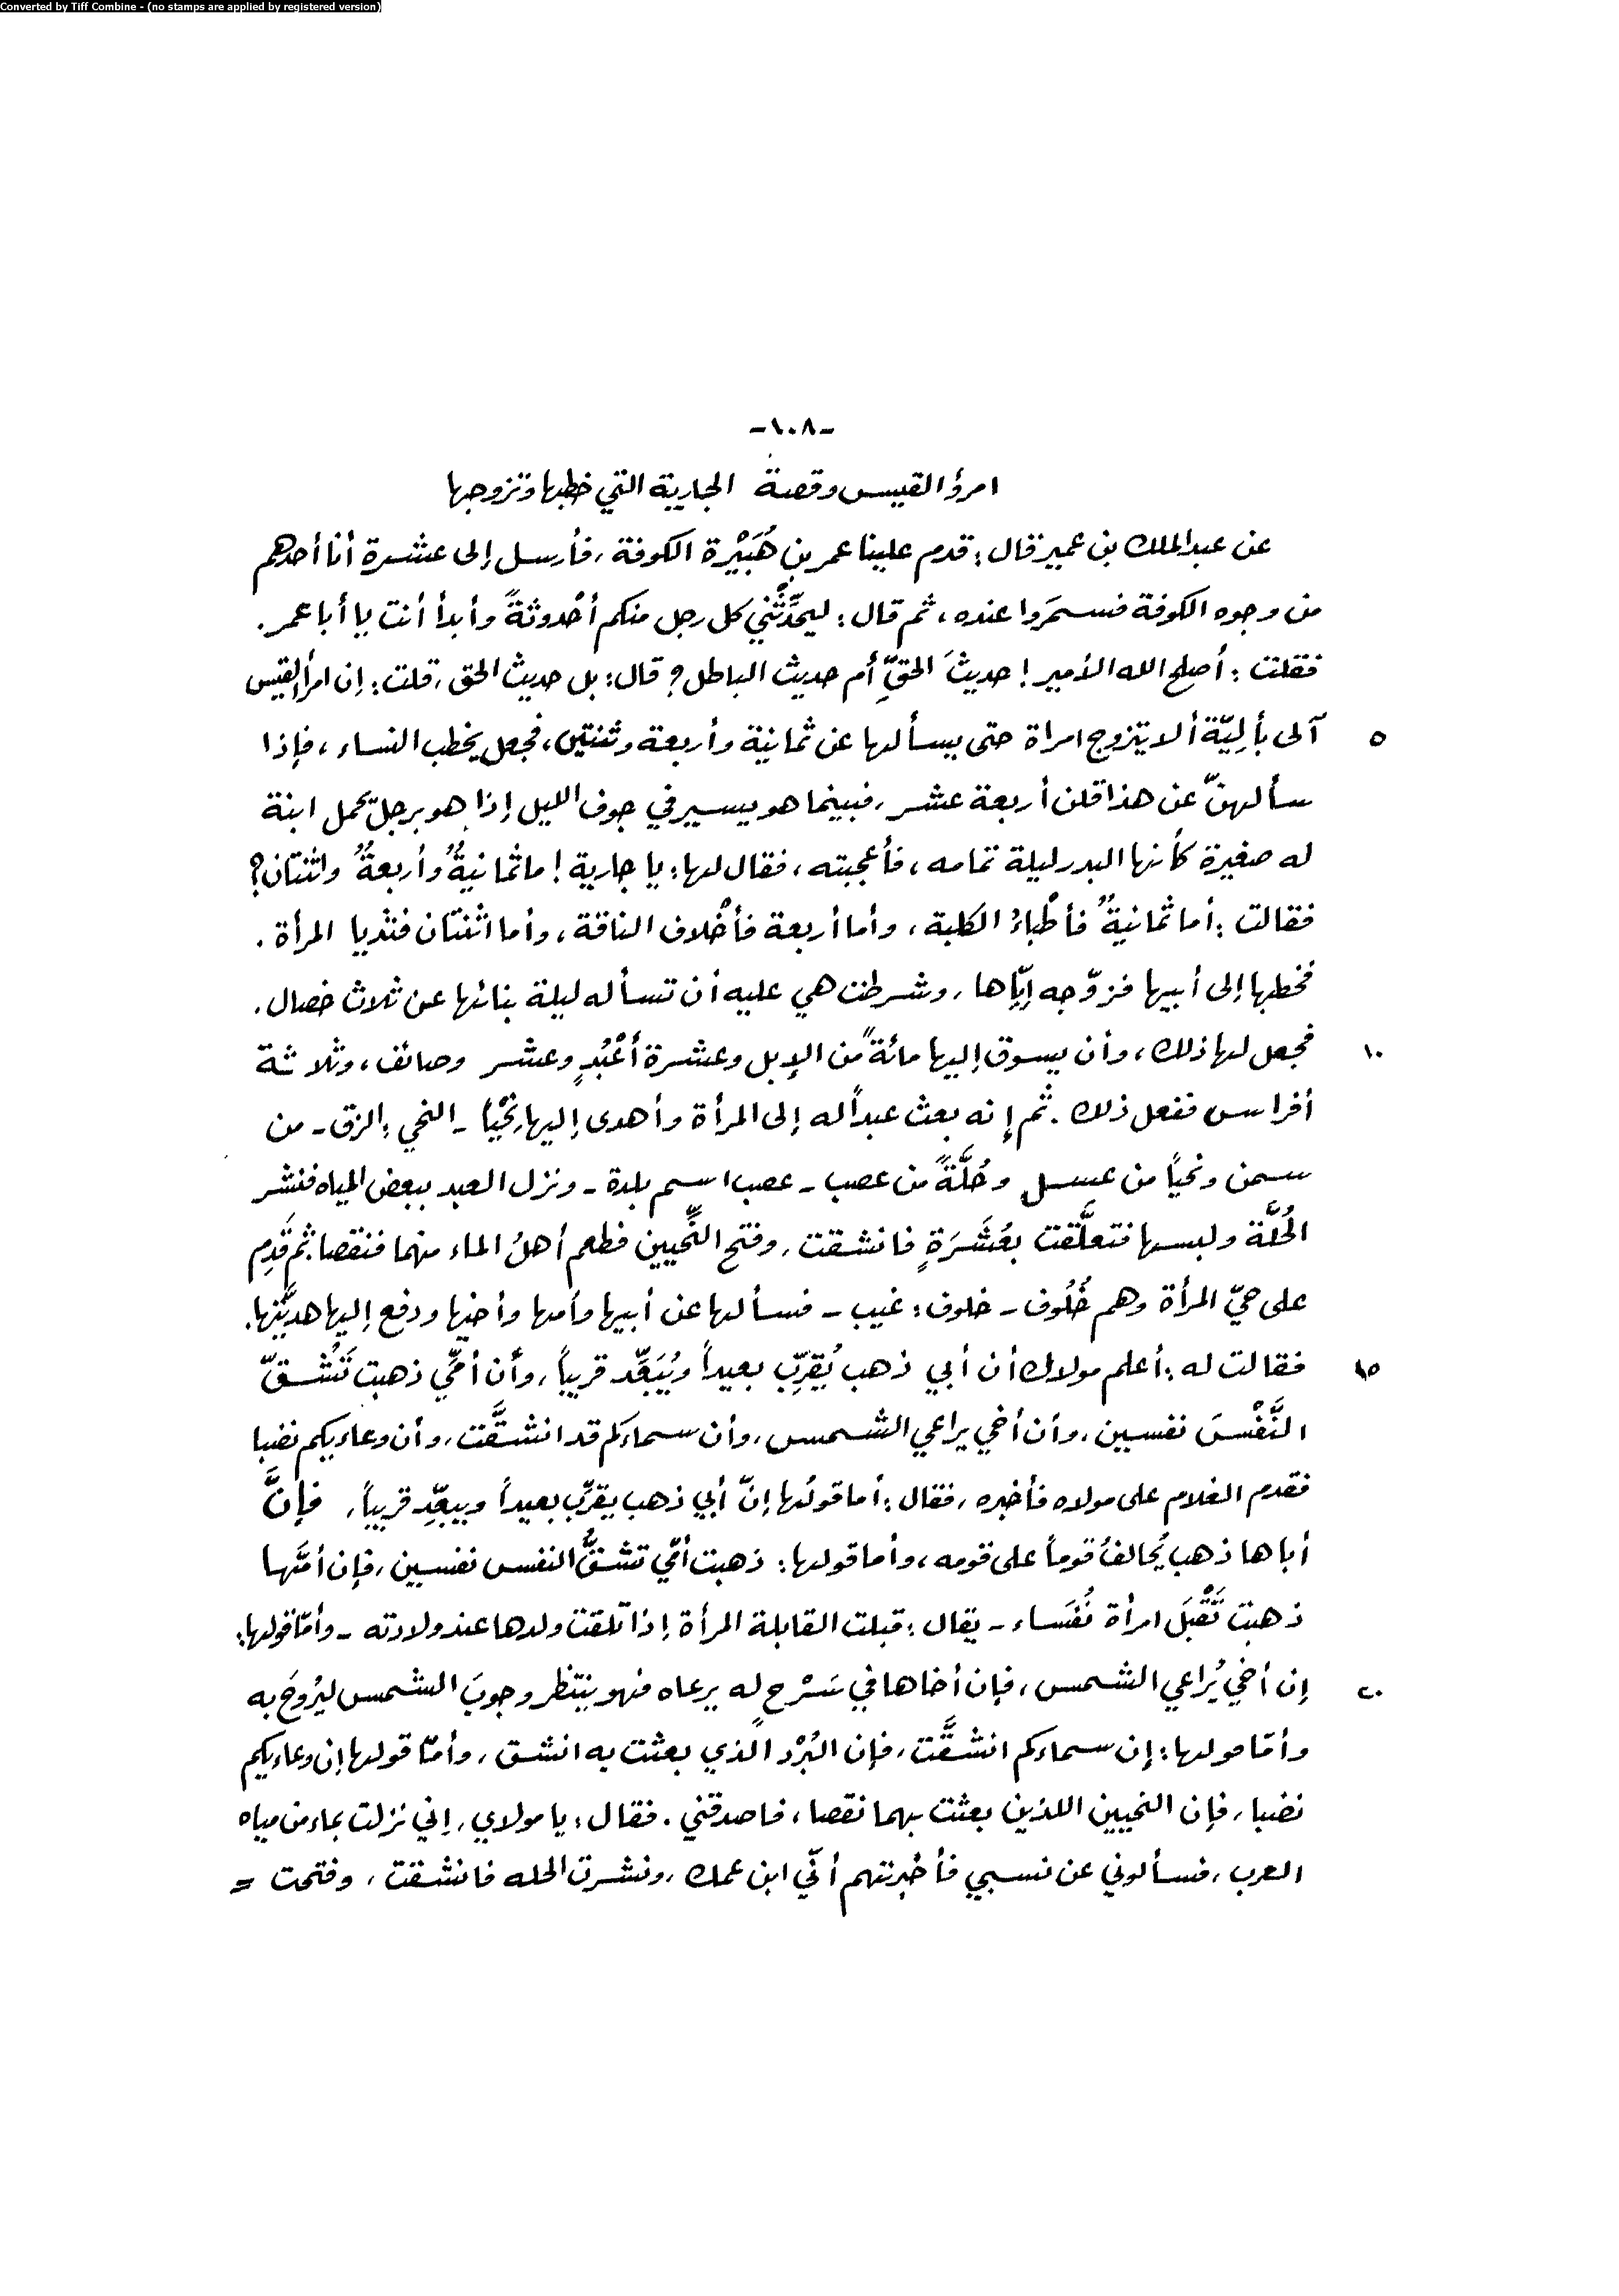 Converted by Tiff Combine - (no stamps are applied by registered version)
-١٠٨-
امرؤ القيس وقصة الجارية التي خطبها وتزوجها
عن عبد الملك بن عمير قال: قدم علينا عمر بن هُبَيْرة الكوفة، فأرسل إلى عشرة أنا أحدهم
من وجوه الكوفة فسمَروا عنده، ثم قال: ليحدِّثْني كل رجل منكم أحْدوثةً وأبدأ أنت يا أبا عمر.
فقلت: أصلح الله الأمير! حديثَ الحقِّ أم حديث الباطل؟ قال: بل حديث الحق، قلت: إن امرأ القيس
٥ آلى بألِيّة ألا يتزوج امراة حتى يسألها عن ثمانية وأربعة وثنتين، فجعل يخطب النساء، فإذا
سألهنّ عن هذا قلن أربعة عشر، فبينما هو يسير في جوف الليل إذا هو برجل يحمل ابنة
له صغيرة كأنها البدر ليلة تمامه، فأعجبته، فقال لها: يا جارية! ما ثمانيةٌ وأربعةٌ واثنتان؟
فقالت: أما ثمانيةٌ فأطْباءُ الكلبة، وأما أربعة فأخْلاف الناقة، وأما اثنتان فثديا المرأة.
فخطبها إلى أبيها فزوّجه إيّاها، وشرطت هي عليه أن تسأله ليلة بنائها عن ثلاث خصال.
١٠ فجعل لها ذلك، وأن يسوق إليها مائةً من الإبل وعشرة أعْبُدٍ وعشر وصائف، وثلاثة
أفراس ففعل ذلك. ثم إنه بعث عبداً له إلى المرأة وأهدى إليها نِحْياً - النحي: الزق - من
سمن ونحياً من عسل وحُلَّةً من عصب - عصب اسم بلدة - ونزل العبد ببعض المياه فنشر
الحُلَّة ولبسها فتعلَّقت بعُشَرَةٍ فانشقت، وفتح النِّحيين فطعم أهلُ الماء منهما فنقصا ثم قَدِم
على حيّ المرأة وهم خُلُوف - خلوف: غيب - فسألها عن أبيها وأمها وأخيها ودفع إليها هديَّتها.
١٥ فقالت له: أعلم مولاك أن أبي ذهب يُقرِّب بعيداً ويُبَعِّد قريباً، وأن أمِّي ذهبت تَشُقّ
النَّفْسَ نفسين، وأن أخي يراعي الشمس، وأن سماءكم قد انشقَّت، وأن وعاءيكم نضبا
فقدم الغلام على مولاه فأخبره، فقال: أما قولُها إنّ أبي ذهب يقرِّب بعيداً ويبعِّد قريباً، فإنَّ
أباها ذهب يُحالفُ قوماً على قومه، وأما قولها: ذهبت أمّي تشقُّ النفس نفسين، فإن أمَّها
ذهبت تَقْبَل امرأة نُفَساء - يقال: قبلت القابلة المرأة إذا تلقت ولدها عند ولادته - وأمّا قولها:
٢٠ إن أخي يُراعي الشمس، فإن أخاها في سَرْحٍ له يرعاه فهو ينتظر وجوبَ الشمس ليُروحَ به
وأمّا قولها: إن سماءكم انشقَّت، فإن البُرْد الذي بعثت به انشق، وأمّا قولها إن وعاءيكم
نضبا، فإن النحيين اللذين بعثت بهما نقصا، فاصدقني. فقال: يا مولاي، إني نزلت بماء من مياه
العرب، فسألوني عن نسبي فأخبرتهم أنّي ابن عمك، ونشرت الحله فانشقت، وفتحت =